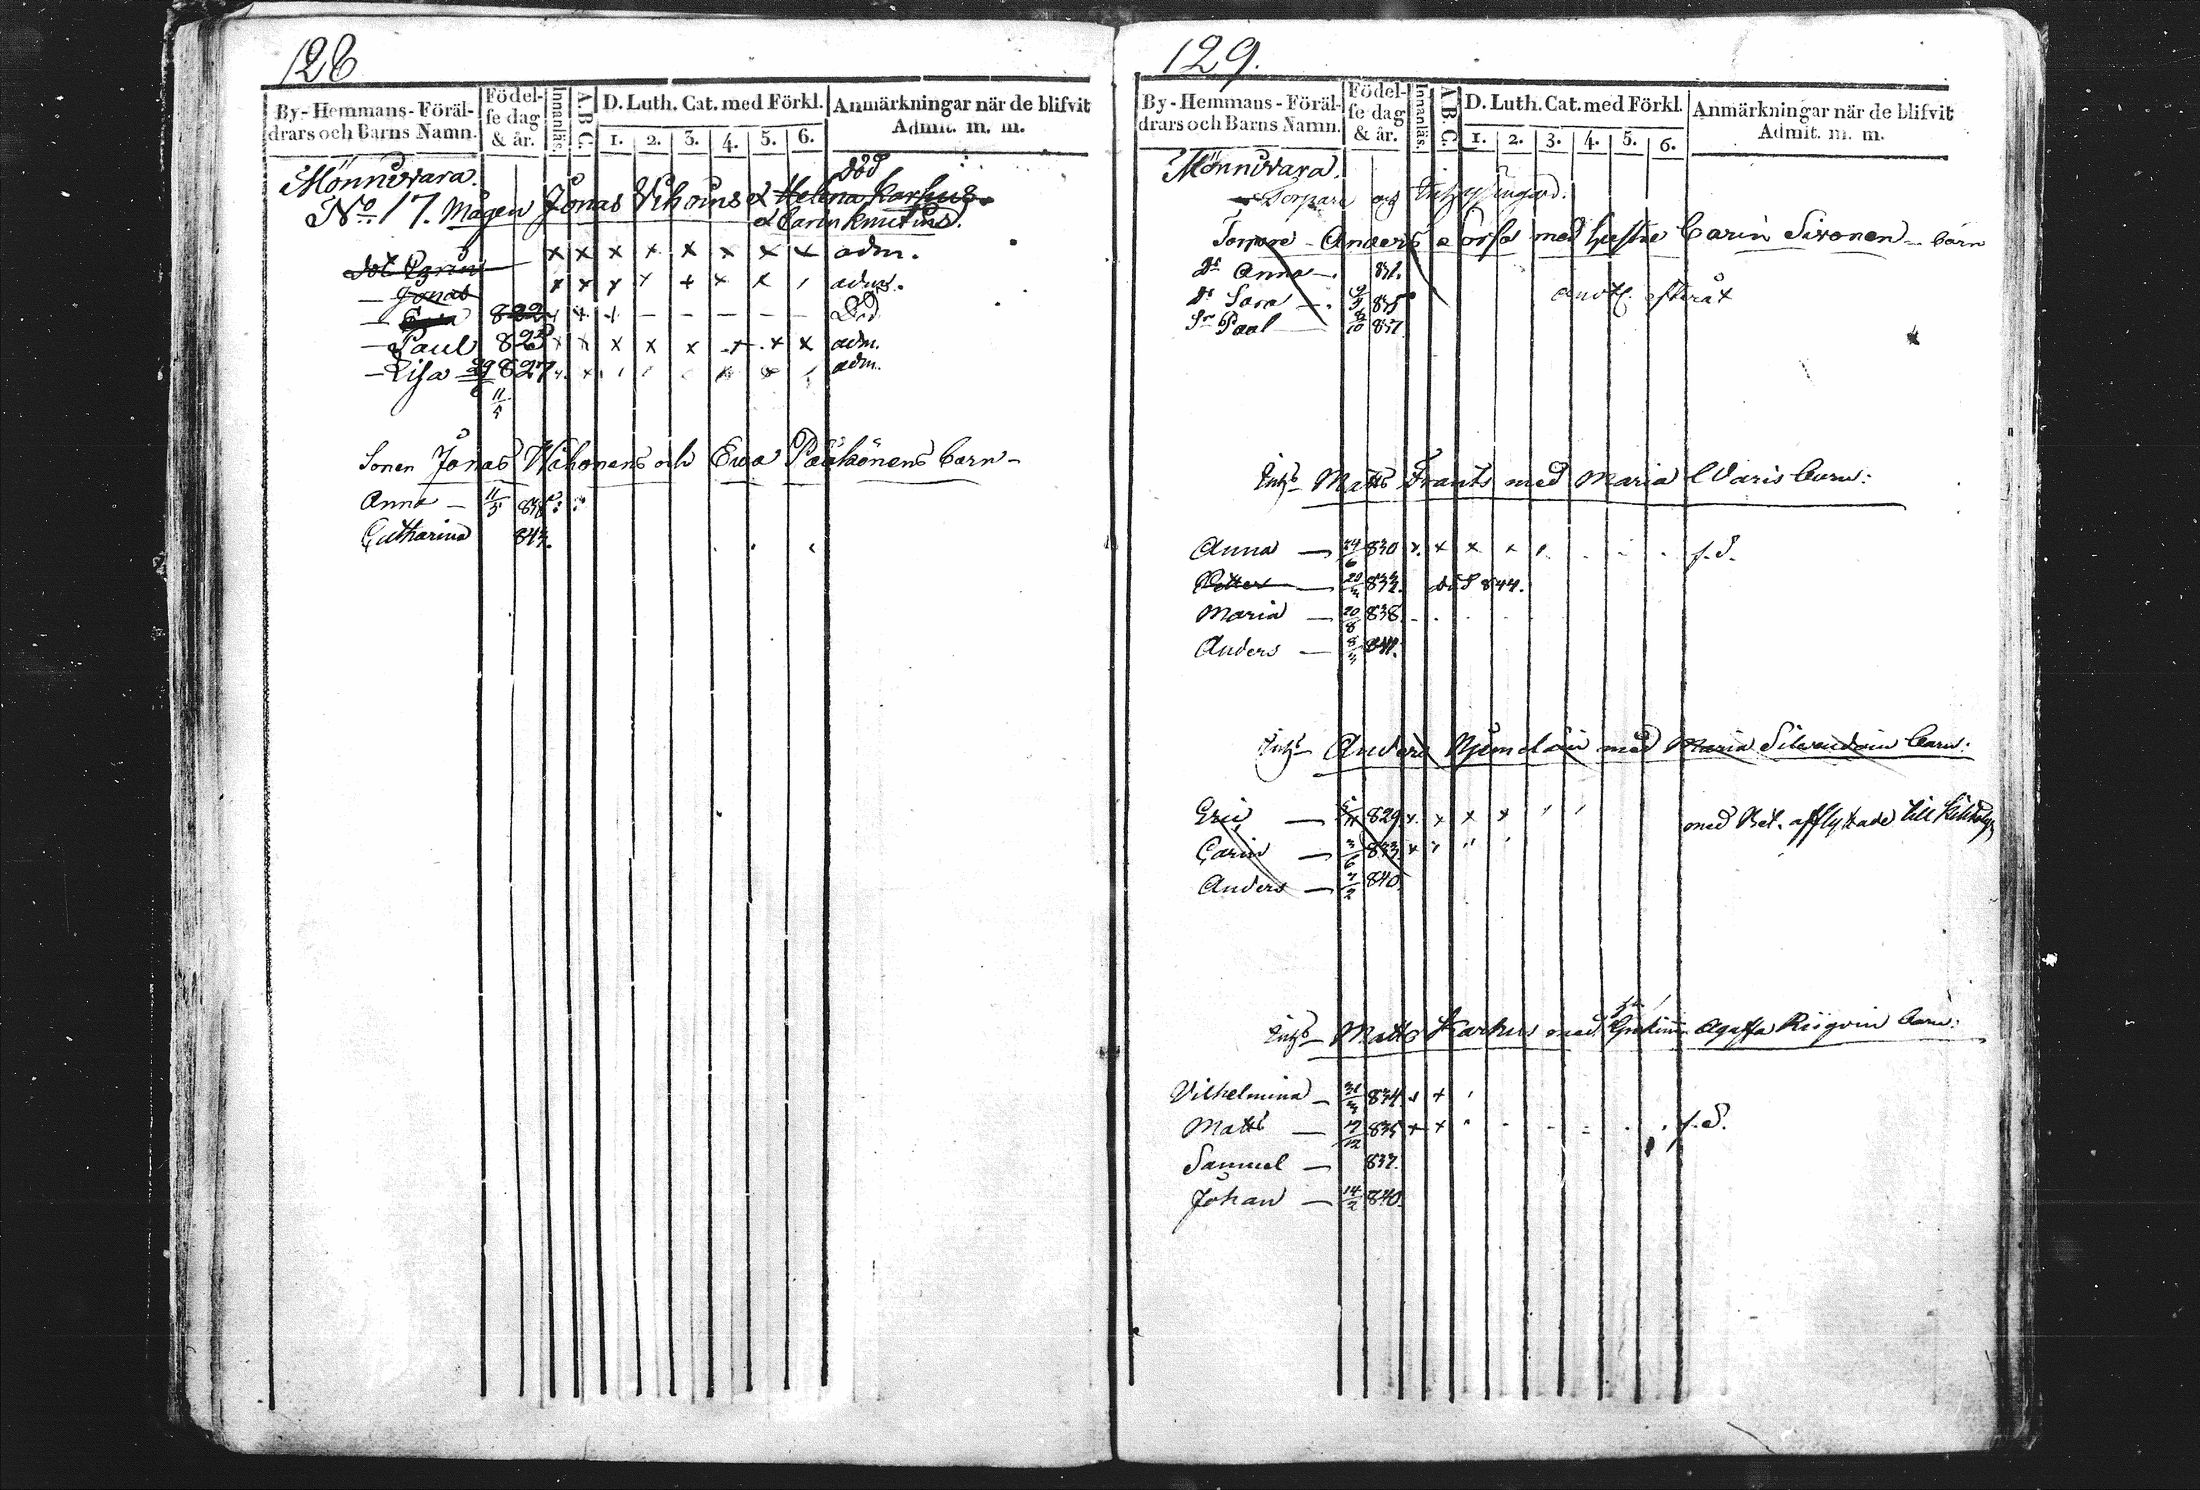 128
By-Hemmans-Föräl-drars och Barns Namn. Födel-se dag & år. Innanläs. A.B.C. D. Luth. Cat. med Förkl. 1. 2. 3. 4. 5. 6. Anmärkningar när de blifvit Admit. m. m.
Mönnivara.
död
No 17. Mågen Jonas Vihoins & Helena Karhus
& Carin Knutins.
dot. Carin x x x x x x x x adm.
— Jonas x x x x + x x adm.
— 822 x x x — — — — — Död
— Paul 823 x x x x x x x x adm.
— Lisa 29/6 827 adm.
11/5
Sonen Jonas Wihonens och Ewa Pääkönens barn —
Anna — 11/5 838
Catharina 843.
129.
By-Hemmans-Föräl-drars och Barns Namn. Födel-se dag & år. Innanläs. A.B.C. D. Luth. Cat. med Förkl. 1. 2. 3. 4. 5. 6. Anmärkningar när de blifvit Admit. m. m.
Mönnivara.
Torpare og
Torpare — Anders med hustru Carin Sivonen — barn
Dr Anna —. 831.
Dr Sara —. 835
Sn Paal 837
Inhs Matts Frants med Maria Varis barn:
Anna — 24/6 830 x. x x x f. d.
Petter — död 844.
Maria — 20/8 838.
Anders — 841.
Inhs Anders med Maria barn:
Eric — 829 x. x x x med Bet. afflyttade till
Carin — 3/6 833 x
Anders — 7/2 840.
Inhs Matts Karhus med Agaffa barn:
Vilhelmina — 31/3 834 x +
Matts — 17/12 835 x + f. d.
Samuel — 837.
Johan — 14/2 840.